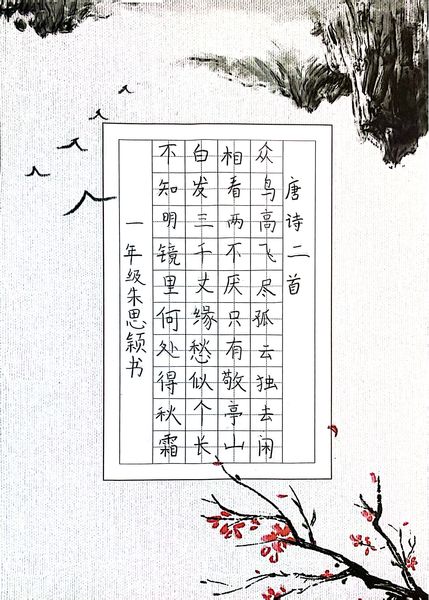 唐诗二首
众鸟高飞尽孤云独去闲
相看两不厌只有敬亭山
白发三千丈缘愁似个长
不知明镜里何处得秋霜
一年级朱思颖书